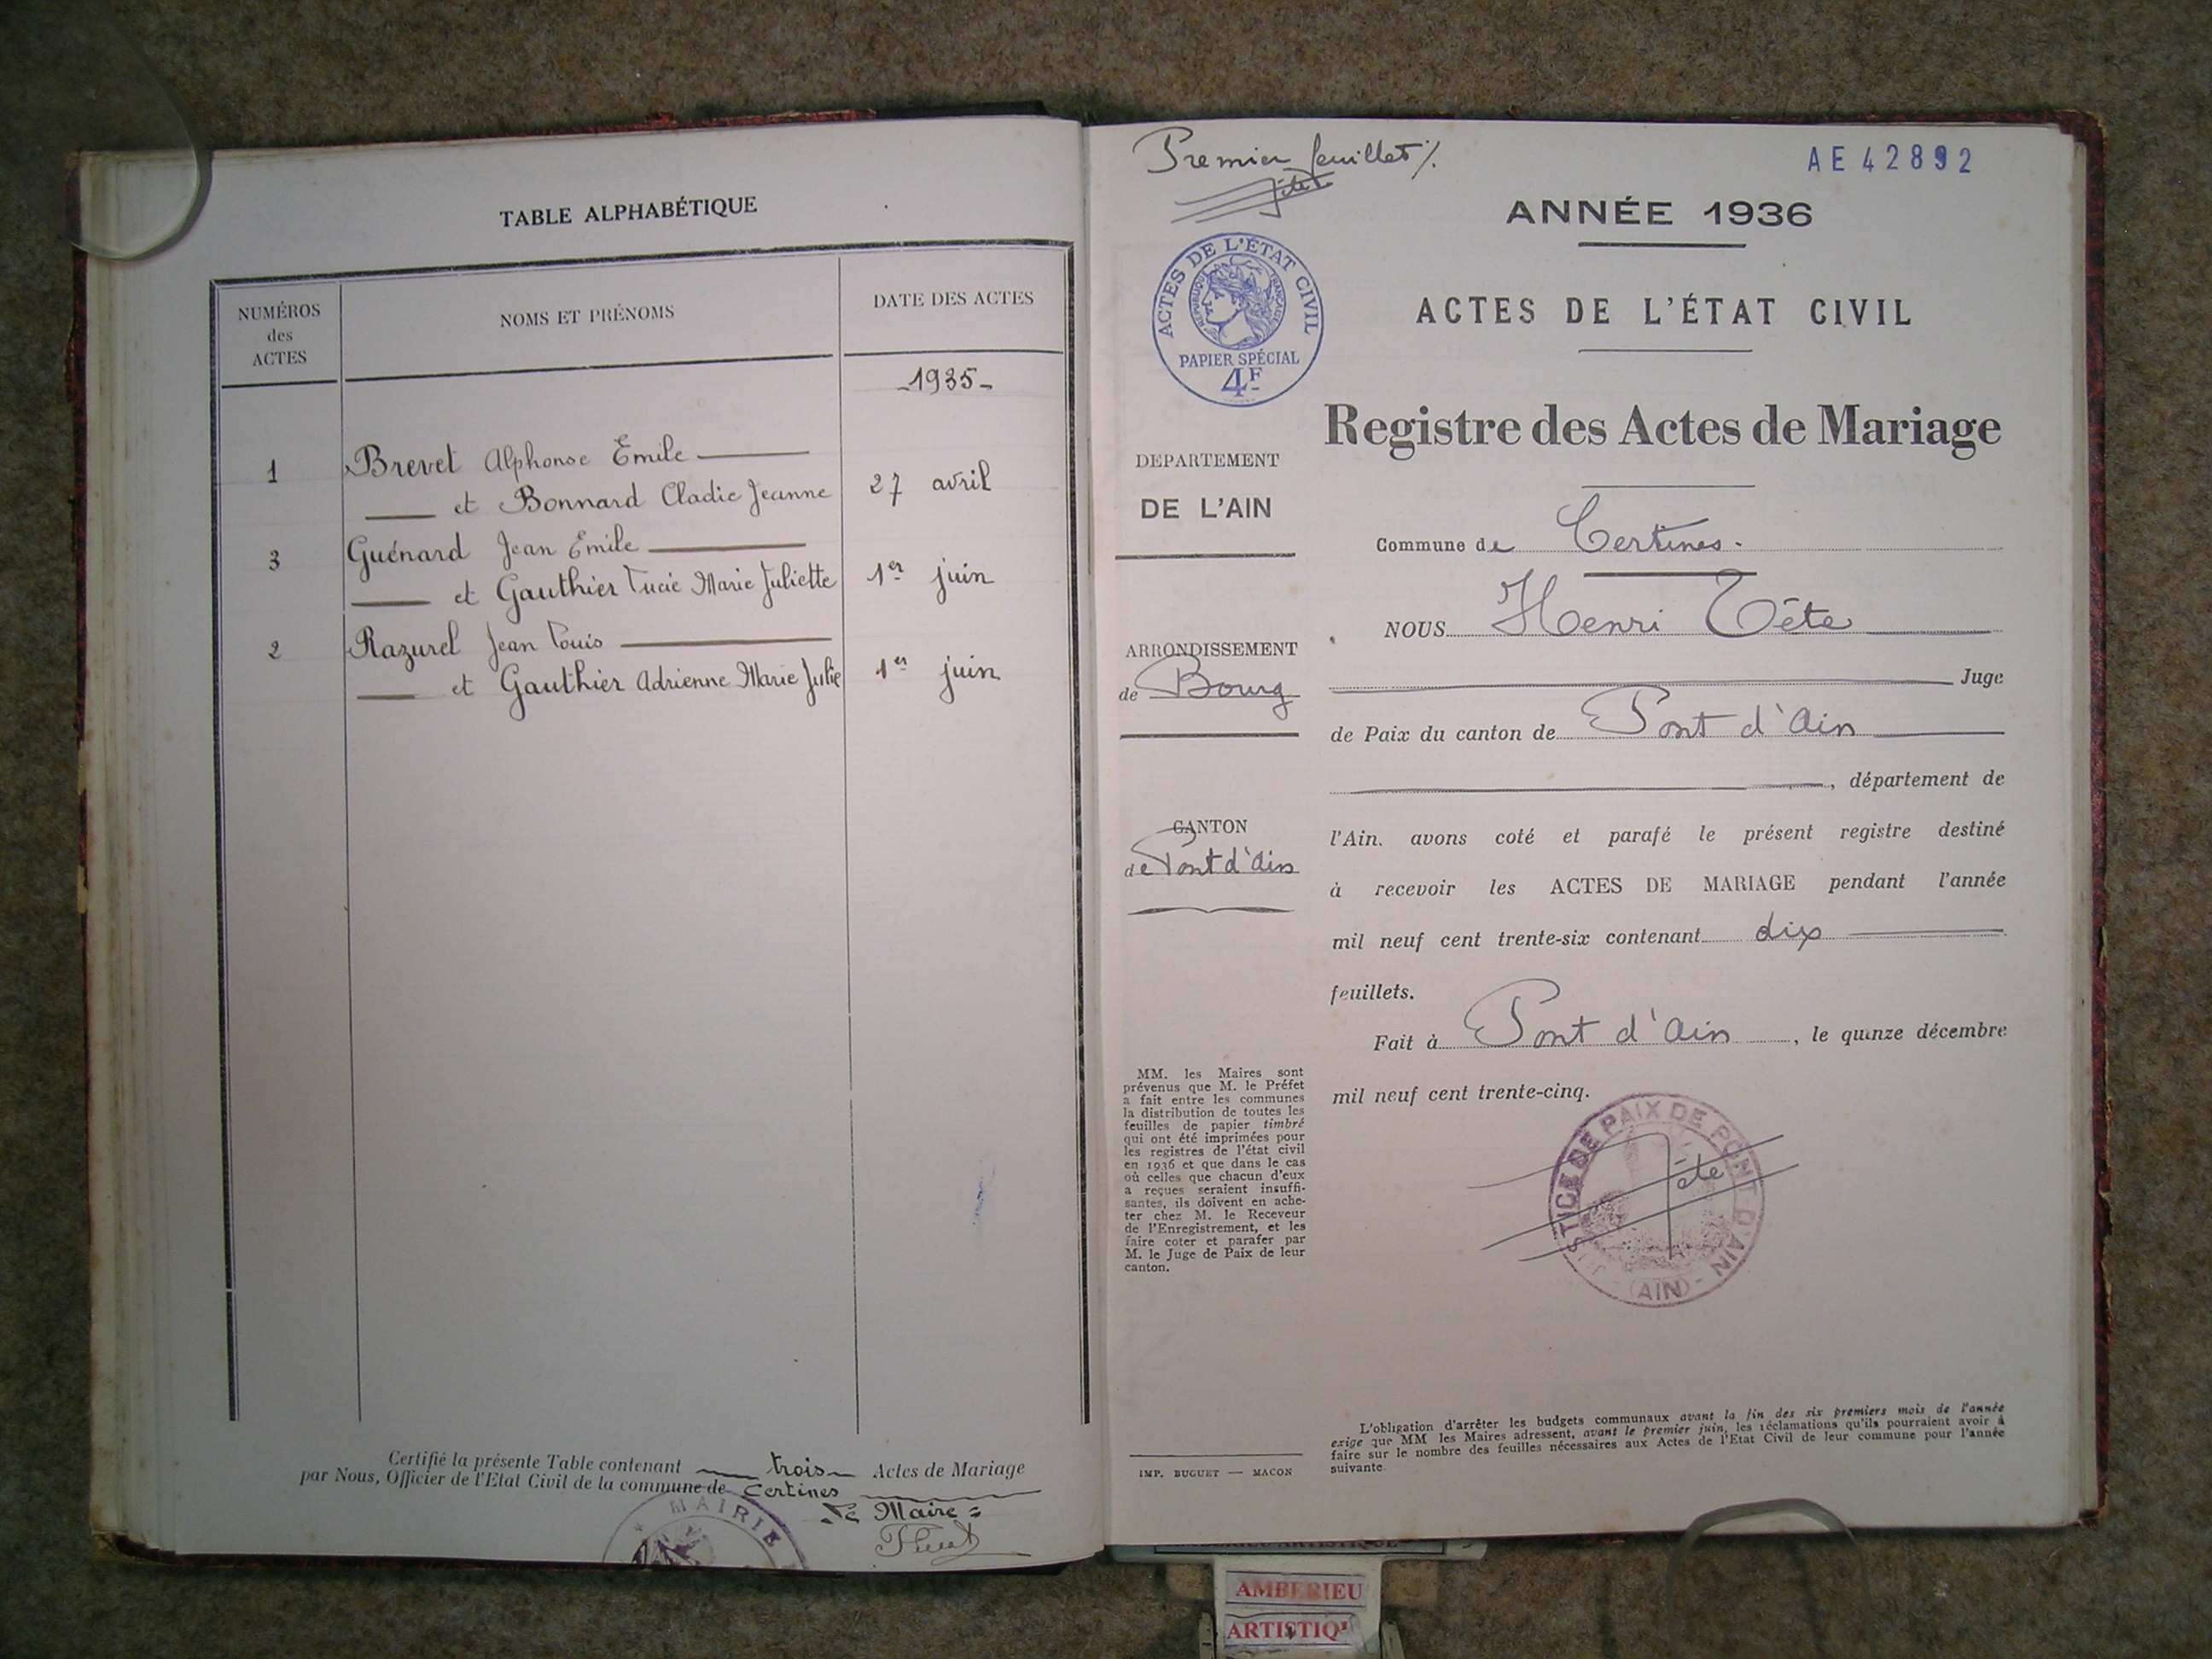 TABLE ALPHABÉTIQUE
NUMÉROS
des
ACTES
NOMS ET PRÉNOMS
DATE DES ACTES
1935
1 Brevet Alphonse Emile
et Bonnard Cladie Jeanne 27 avril
3 Guénard Jean Emile
et Gauthier Lucie Marie Juliette 1er juin
2 Razurel Jean Louis
et Gauthier Adrienne Marie Julie 1er juin
Certifié la présente Table contenant trois Actes de Mariage
par Nous, Officier de l'Etat Civil de la commune de Certines
Le Maire
MAIRIE
Premier feuillet
Tête
AE 42892
ACTES DE L'ÉTAT CIVIL
RÉPUBLIQUE FRANÇAISE
PAPIER SPÉCIAL
4F
ANNÉE 1936
ACTES DE L'ÉTAT CIVIL
Registre des Actes de Mariage
DEPARTEMENT
DE L'AIN
ARRONDISSEMENT
de Bourg
CANTON
de Pont d'Ain
MM. les Maires sont
prévenus que M. le Préfet
a fait entre les communes
la distribution de toutes les
feuilles de papier timbré
qui ont été imprimées pour
les registres de l'état civil
en 1936 et que dans le cas
où celles que chacun d'eux
a reçues seraient insuffi-
santes, ils doivent en ache-
ter chez M. le Receveur
de l'Enregistrement, et les
faire coter et parafer par
M. le Juge de Paix de leur
canton.
IMP. BUGUET — MACON
Commune de Certines.
NOUS Henri Tête
Juge
de Paix du canton de Pont d'Ain
, département de
l'Ain. avons coté et parafé le présent registre destiné
à recevoir les ACTES DE MARIAGE pendant l'année
mil neuf cent trente-six contenant dix
feuillets.
Fait à Pont d'Ain, le quinze décembre
mil neuf cent trente-cinq.
JUSTICE DE PAIX DE PONT D'AIN
(AIN)
Tête
L'obligation d'arrêter les budgets communaux avant la fin des six premiers mois de l'année
exige que MM les Maires adressent, avant le premier juin, les réclamations qu'ils pourraient avoir à
faire sur le nombre des feuilles nécessaires aux Actes de l'Etat Civil de leur commune pour l'année
suivante
AMBERIEU
ARTISTIQ